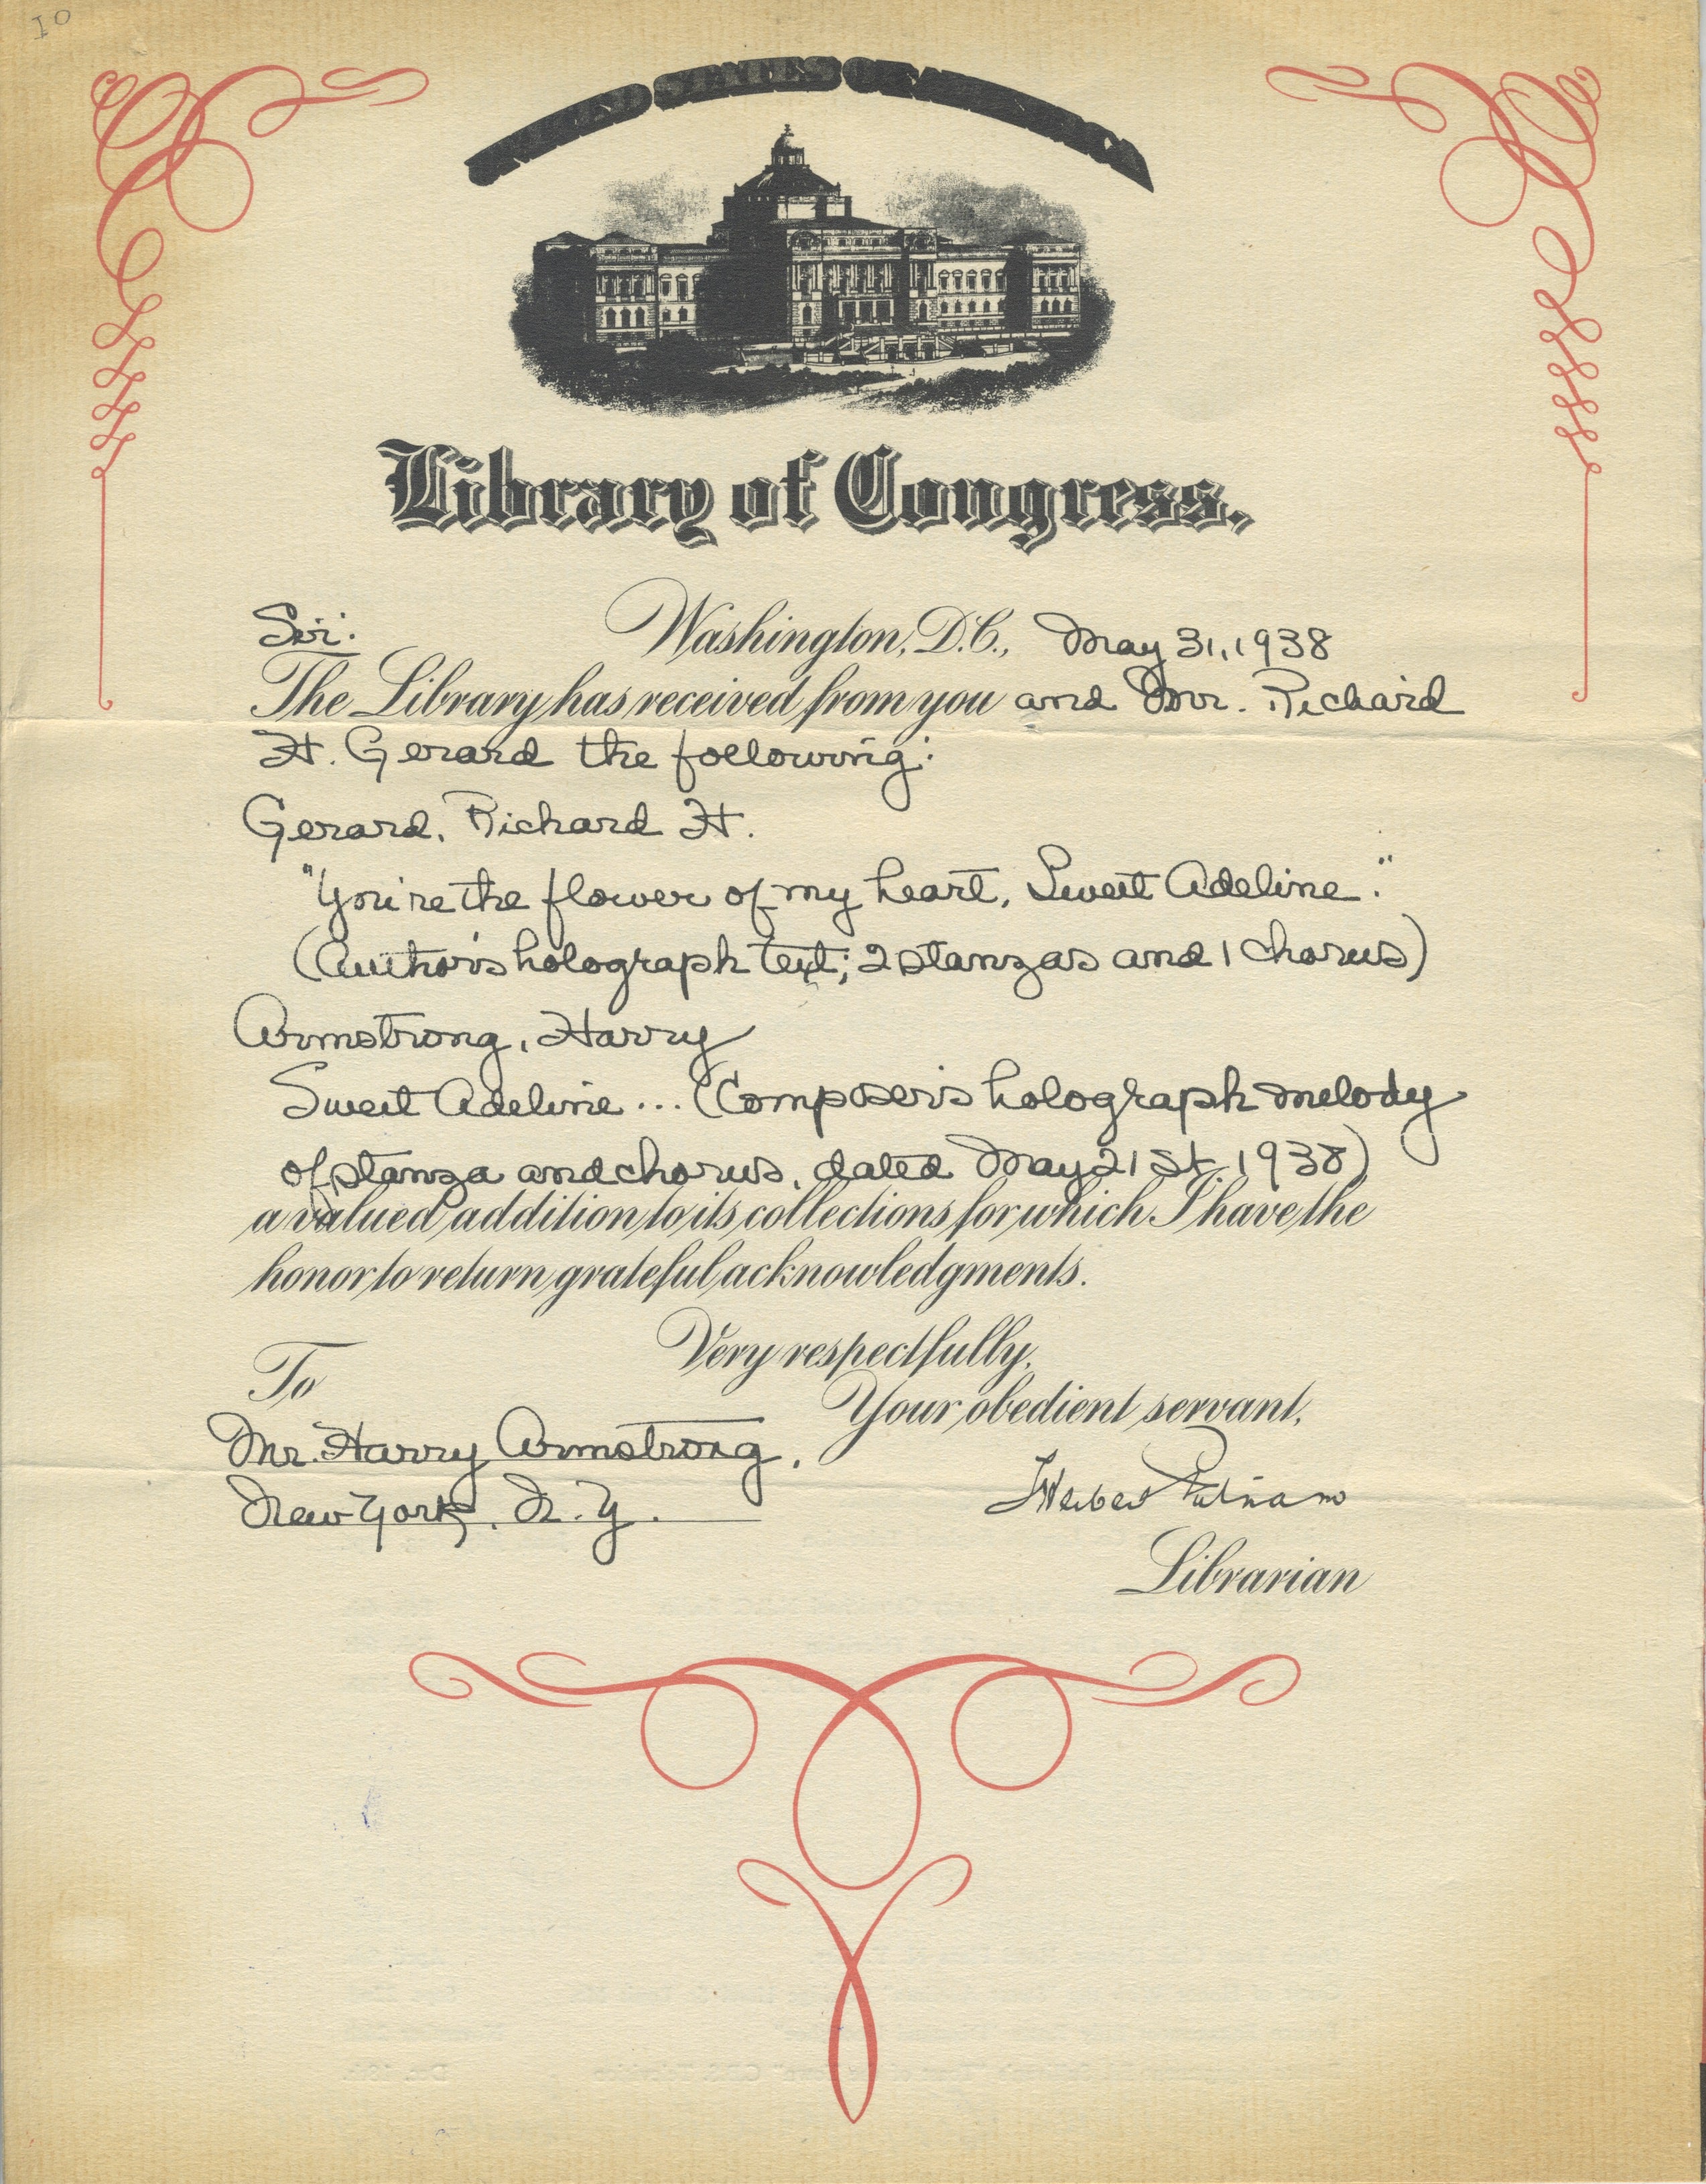 10
UNITED STATES OF AMERICA
Library of Congress.
Sir: Washington, D.C., May 31, 1938
The Library has received from you and Mr. Richard
H. Gerard the following:
Gerard, Richard H.
"You're the flower of my heart, Sweet Adeline."
(Author's holograph text; 2 stanzas and 1 chorus)
Armstrong, Harry
Sweet Adeline ... (Composer's holograph melody
of stanza and chorus, dated May 21st, 1938)
a valued addition to its collections for which I have the
honor to return grateful acknowledgments.
Very respectfully,
To
Your obedient servant,
Mr. Harry Armstrong,
Herbert Putnam
New York, N.Y.
Librarian